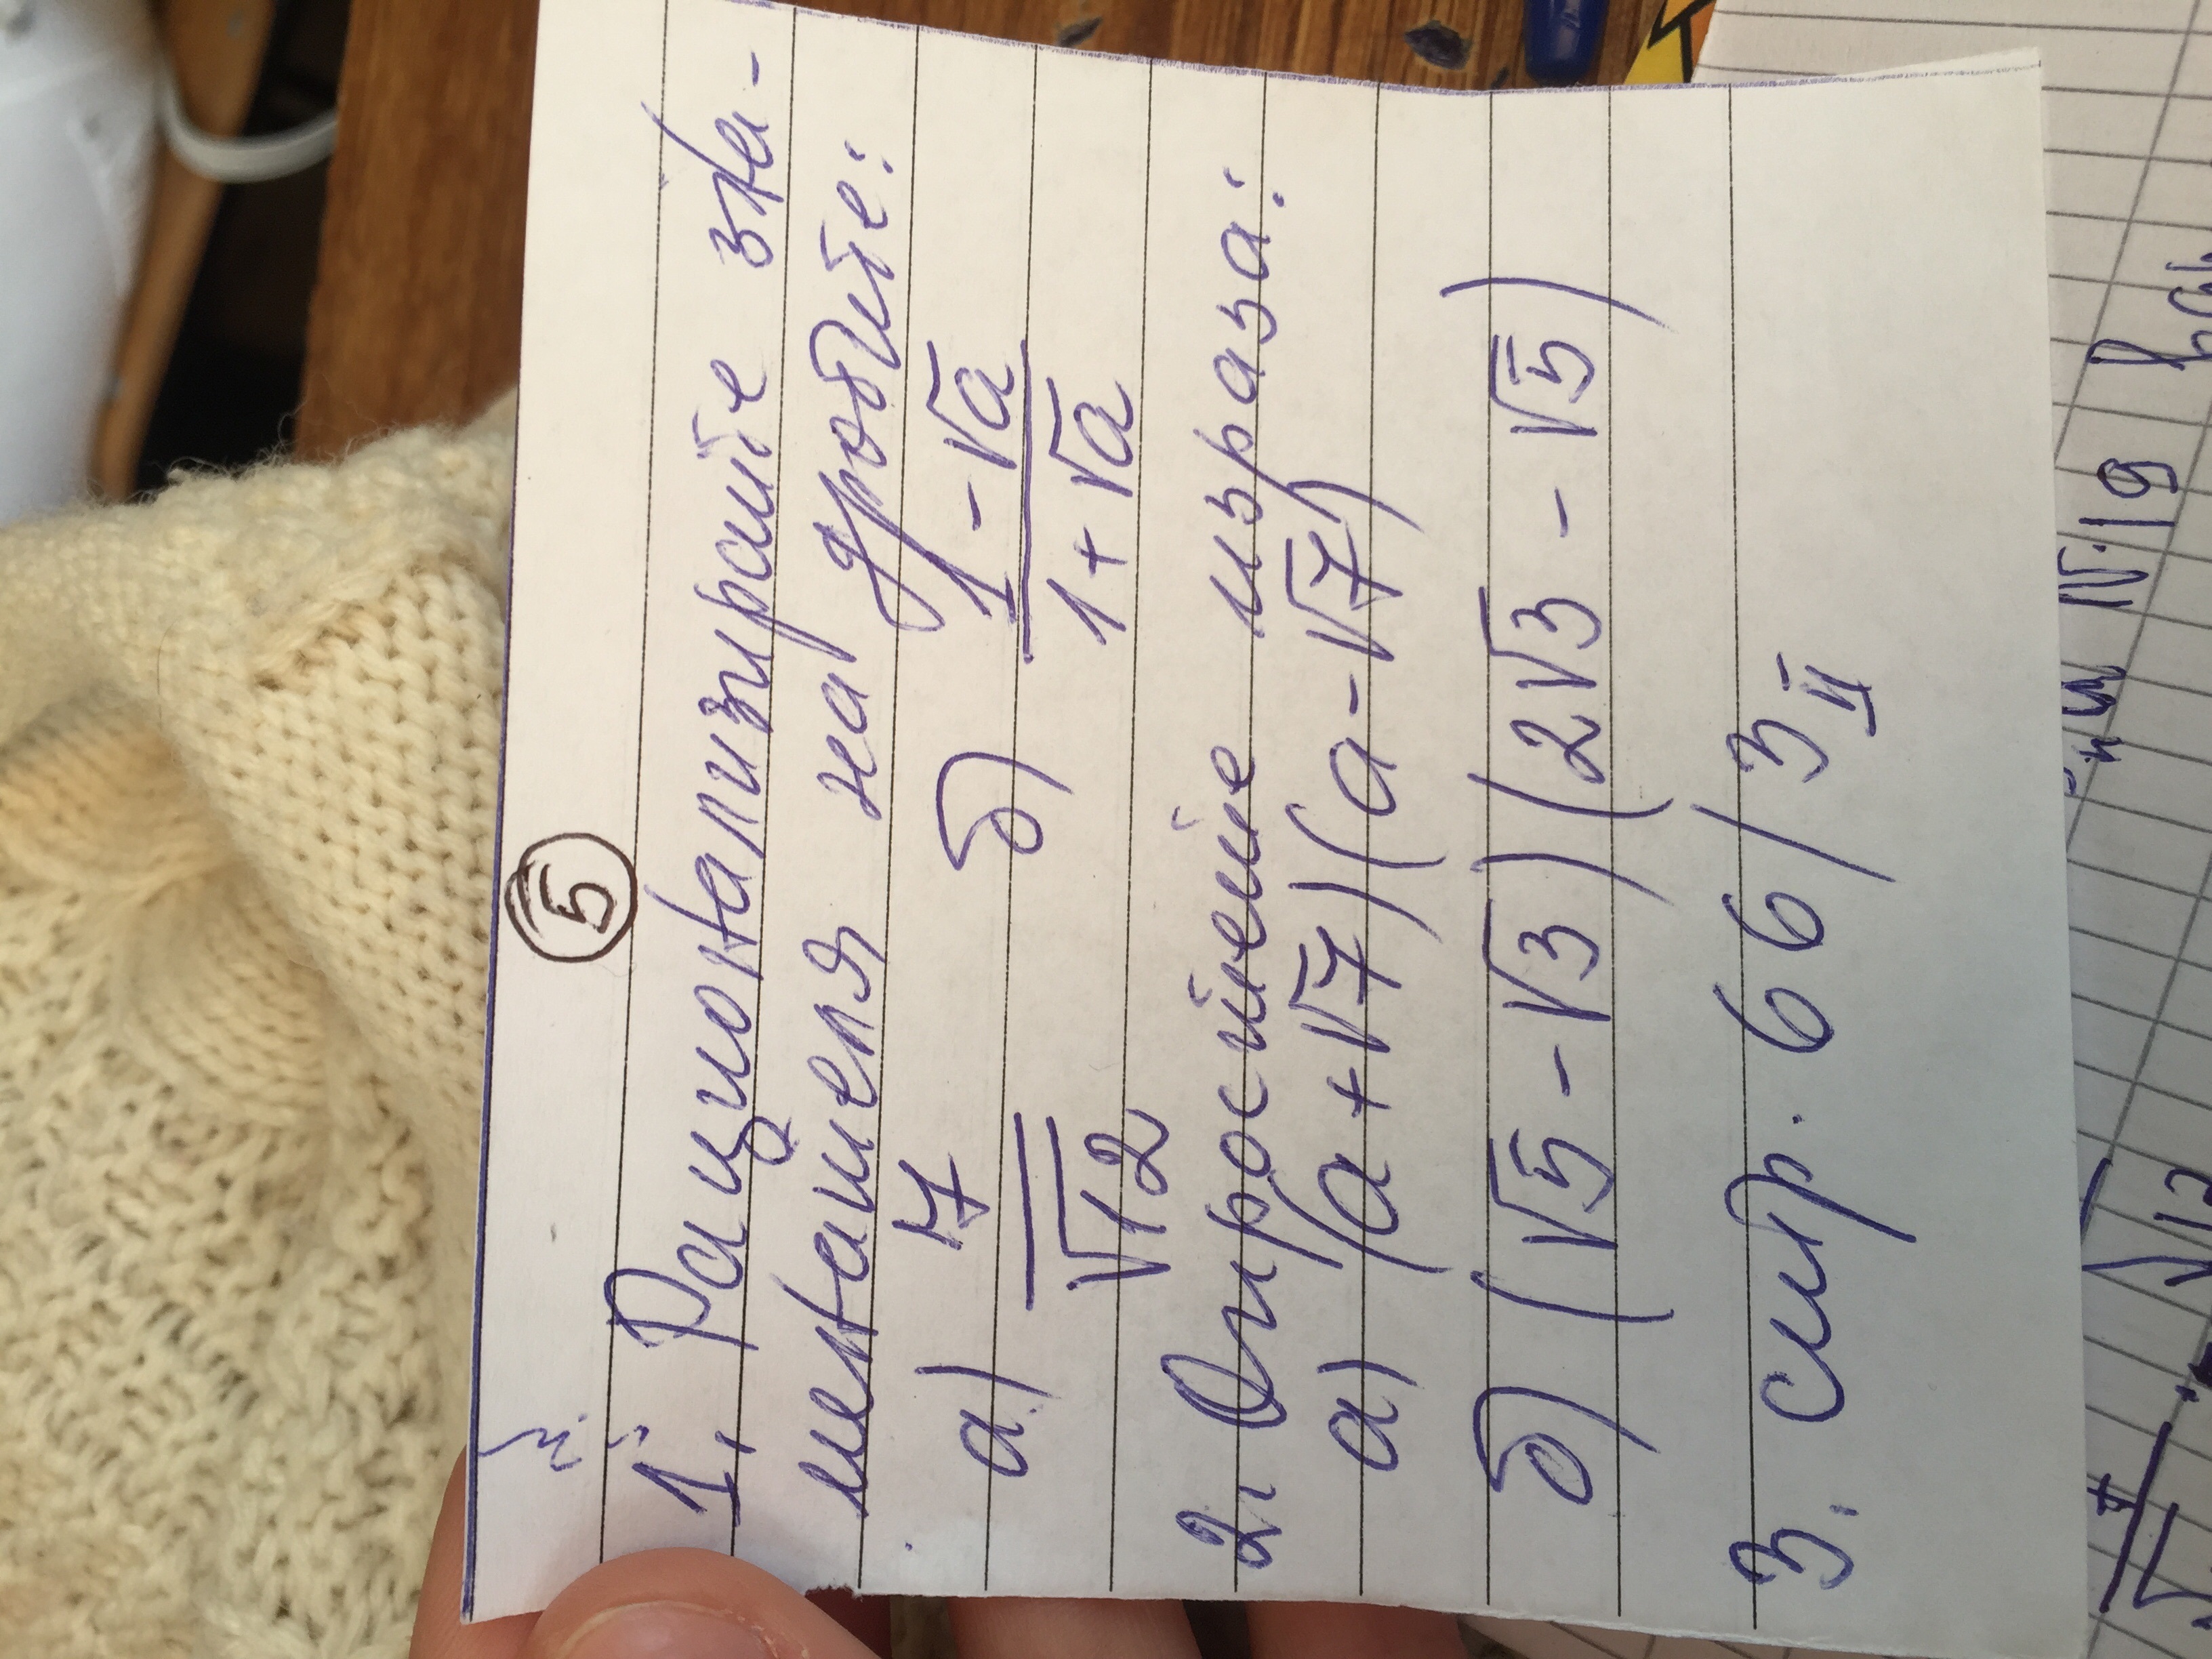 5
1. Рационализирайте зна-
менателя на дробите:
а) 7/√12 б) 1-√a/1+√a
2. Опростете израза:
а) (a+√7)(a-√7)
б) (√5-√3)(2√3-√5)
3. стр. 66/3 II
N.19